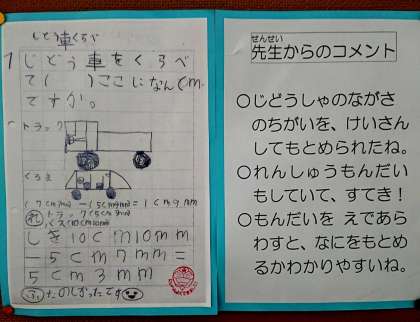 じどう車くらべ
1 じどう車をくらべ
て( )こになんcm
ですか。
トラック
くるま
トラック
しき10cm10mm
－5cm7mm=
5cm3mm
たのしかったです
せんせい
先生からのコメント
○じどうしゃのながさ
のちがいを、けいさん
してもとめられたね。
○れんしゅうもんだい
もしていて、すてき！
○もんだいを えであら
わすと、なにをもとめ
るかわかりやすいね。